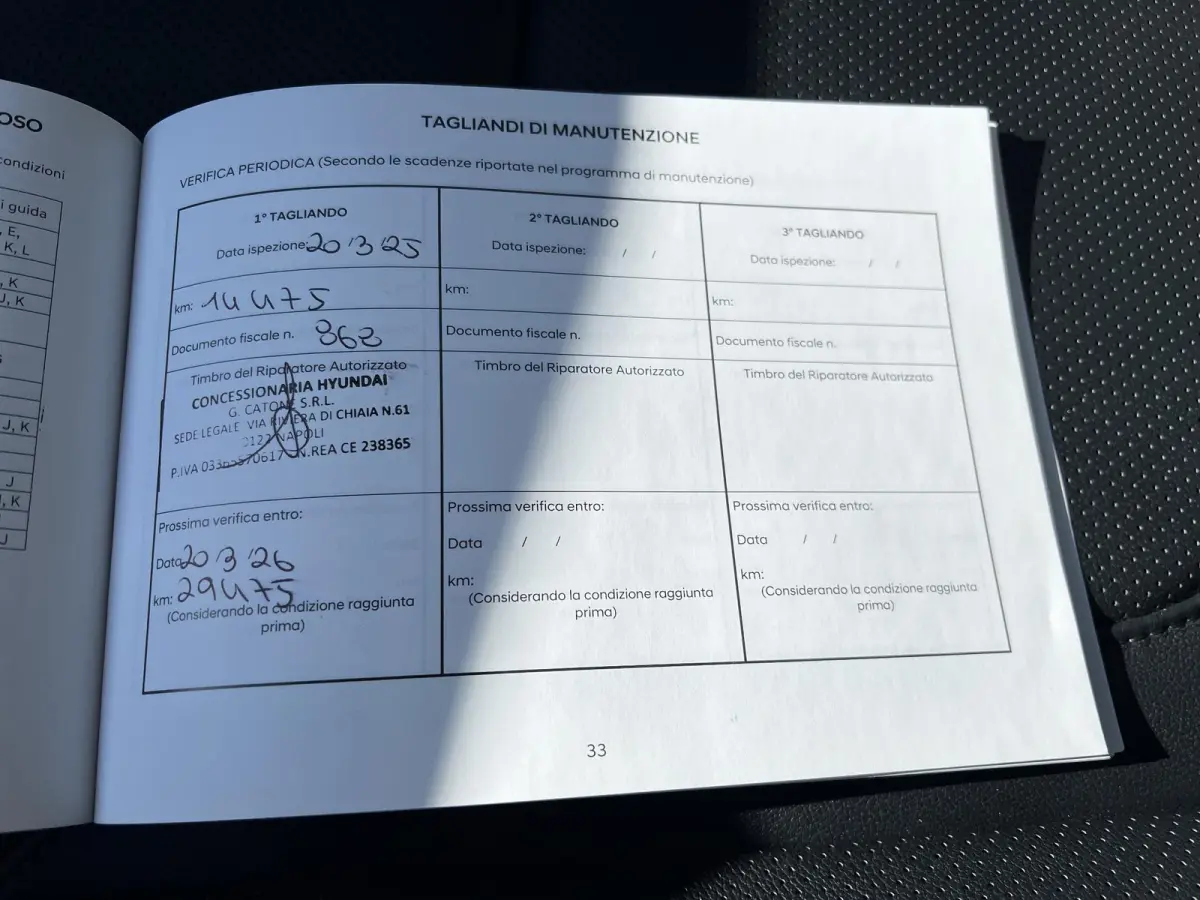 OSO
condizioni
i guida
, E,
K, L
, K
J, K
J, K
J
I, K
J
TAGLIANDI DI MANUTENZIONE
VERIFICA PERIODICA (Secondo le scadenze riportate nel programma di manutenzione)
1° TAGLIANDO
Data ispezione: 20/3/25
km: 14475
Documento fiscale n. 863
Timbro del Riparatore Autorizzato
CONCESSIONARIA HYUNDAI
G. CATONE S.R.L.
SEDE LEGALE VIA RIVIERA DI CHIAIA N.61
NAPOLI
P.IVA N.REA CE 238365
Prossima verifica entro:
Data 20/3/26
km: 29475
(Considerando la condizione raggiunta
prima)
2° TAGLIANDO
Data ispezione: / /
km:
Documento fiscale n.
Timbro del Riparatore Autorizzato
Prossima verifica entro:
Data / /
km:
(Considerando la condizione raggiunta
prima)
3° TAGLIANDO
Data ispezione: / /
km:
Documento fiscale n.
Timbro del Riparatore Autorizzato
Prossima verifica entro:
Data / /
km:
(Considerando la condizione raggiunta
prima)
33